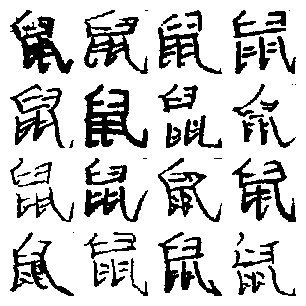 鼠鼠鼠鼠
鼠鼠鼠鼠
鼠鼠鼠鼠
鼠鼠鼠鼠